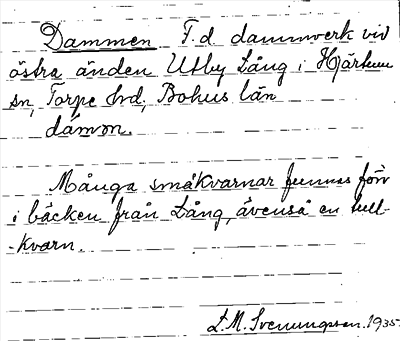 Dammen F.d dammverk vid
östra änden Utby Lång i Hjärtum
sn, Torpe hd, Bohus län
dámən.
Många småkvarnar funnos förr
i bäcken från Lång, ävenså en tull-
-kvarn.
L.M. Svenungsson. 1935.